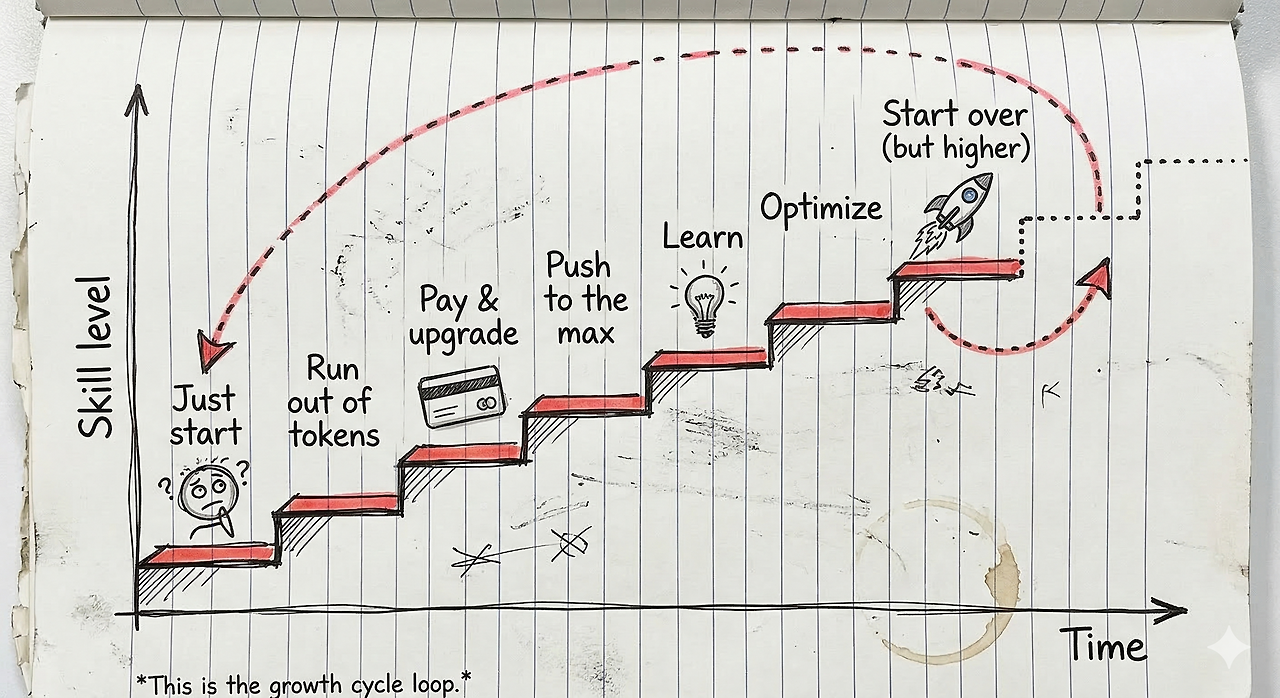 Start over
(but higher)
Optimize
Learn
Push
to the
max
Pay &
upgrade
Run
out of
tokens
Just
start
? ?
Skill level
Time
*This is the growth cycle loop.*